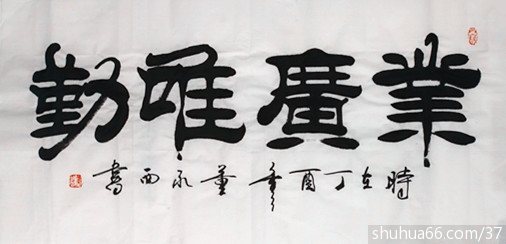 業廣唯勤
時在丁酉年董永西書
shuhua66.com/37